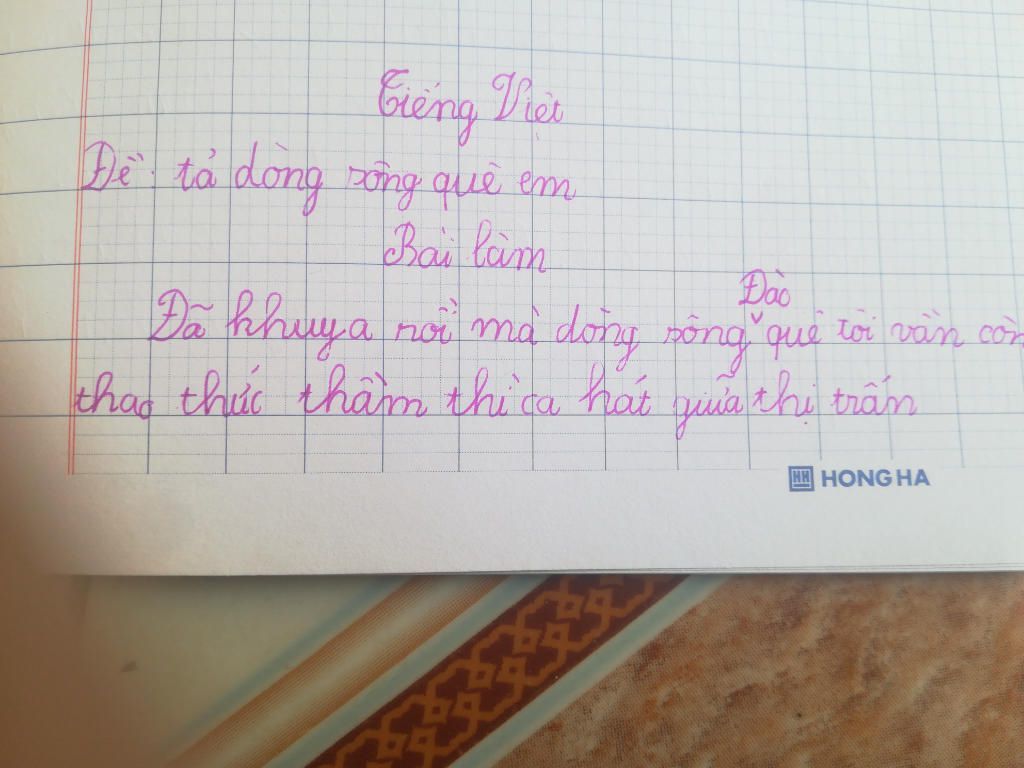 Tiếng Việt
Đề: tả dòng sông quê em
Bài làm
Đã khuya rồi mà dòng sông Đào quê tôi vẫn còn
thao thức thầm thì ca hát giữa thị trấn
HONG HA